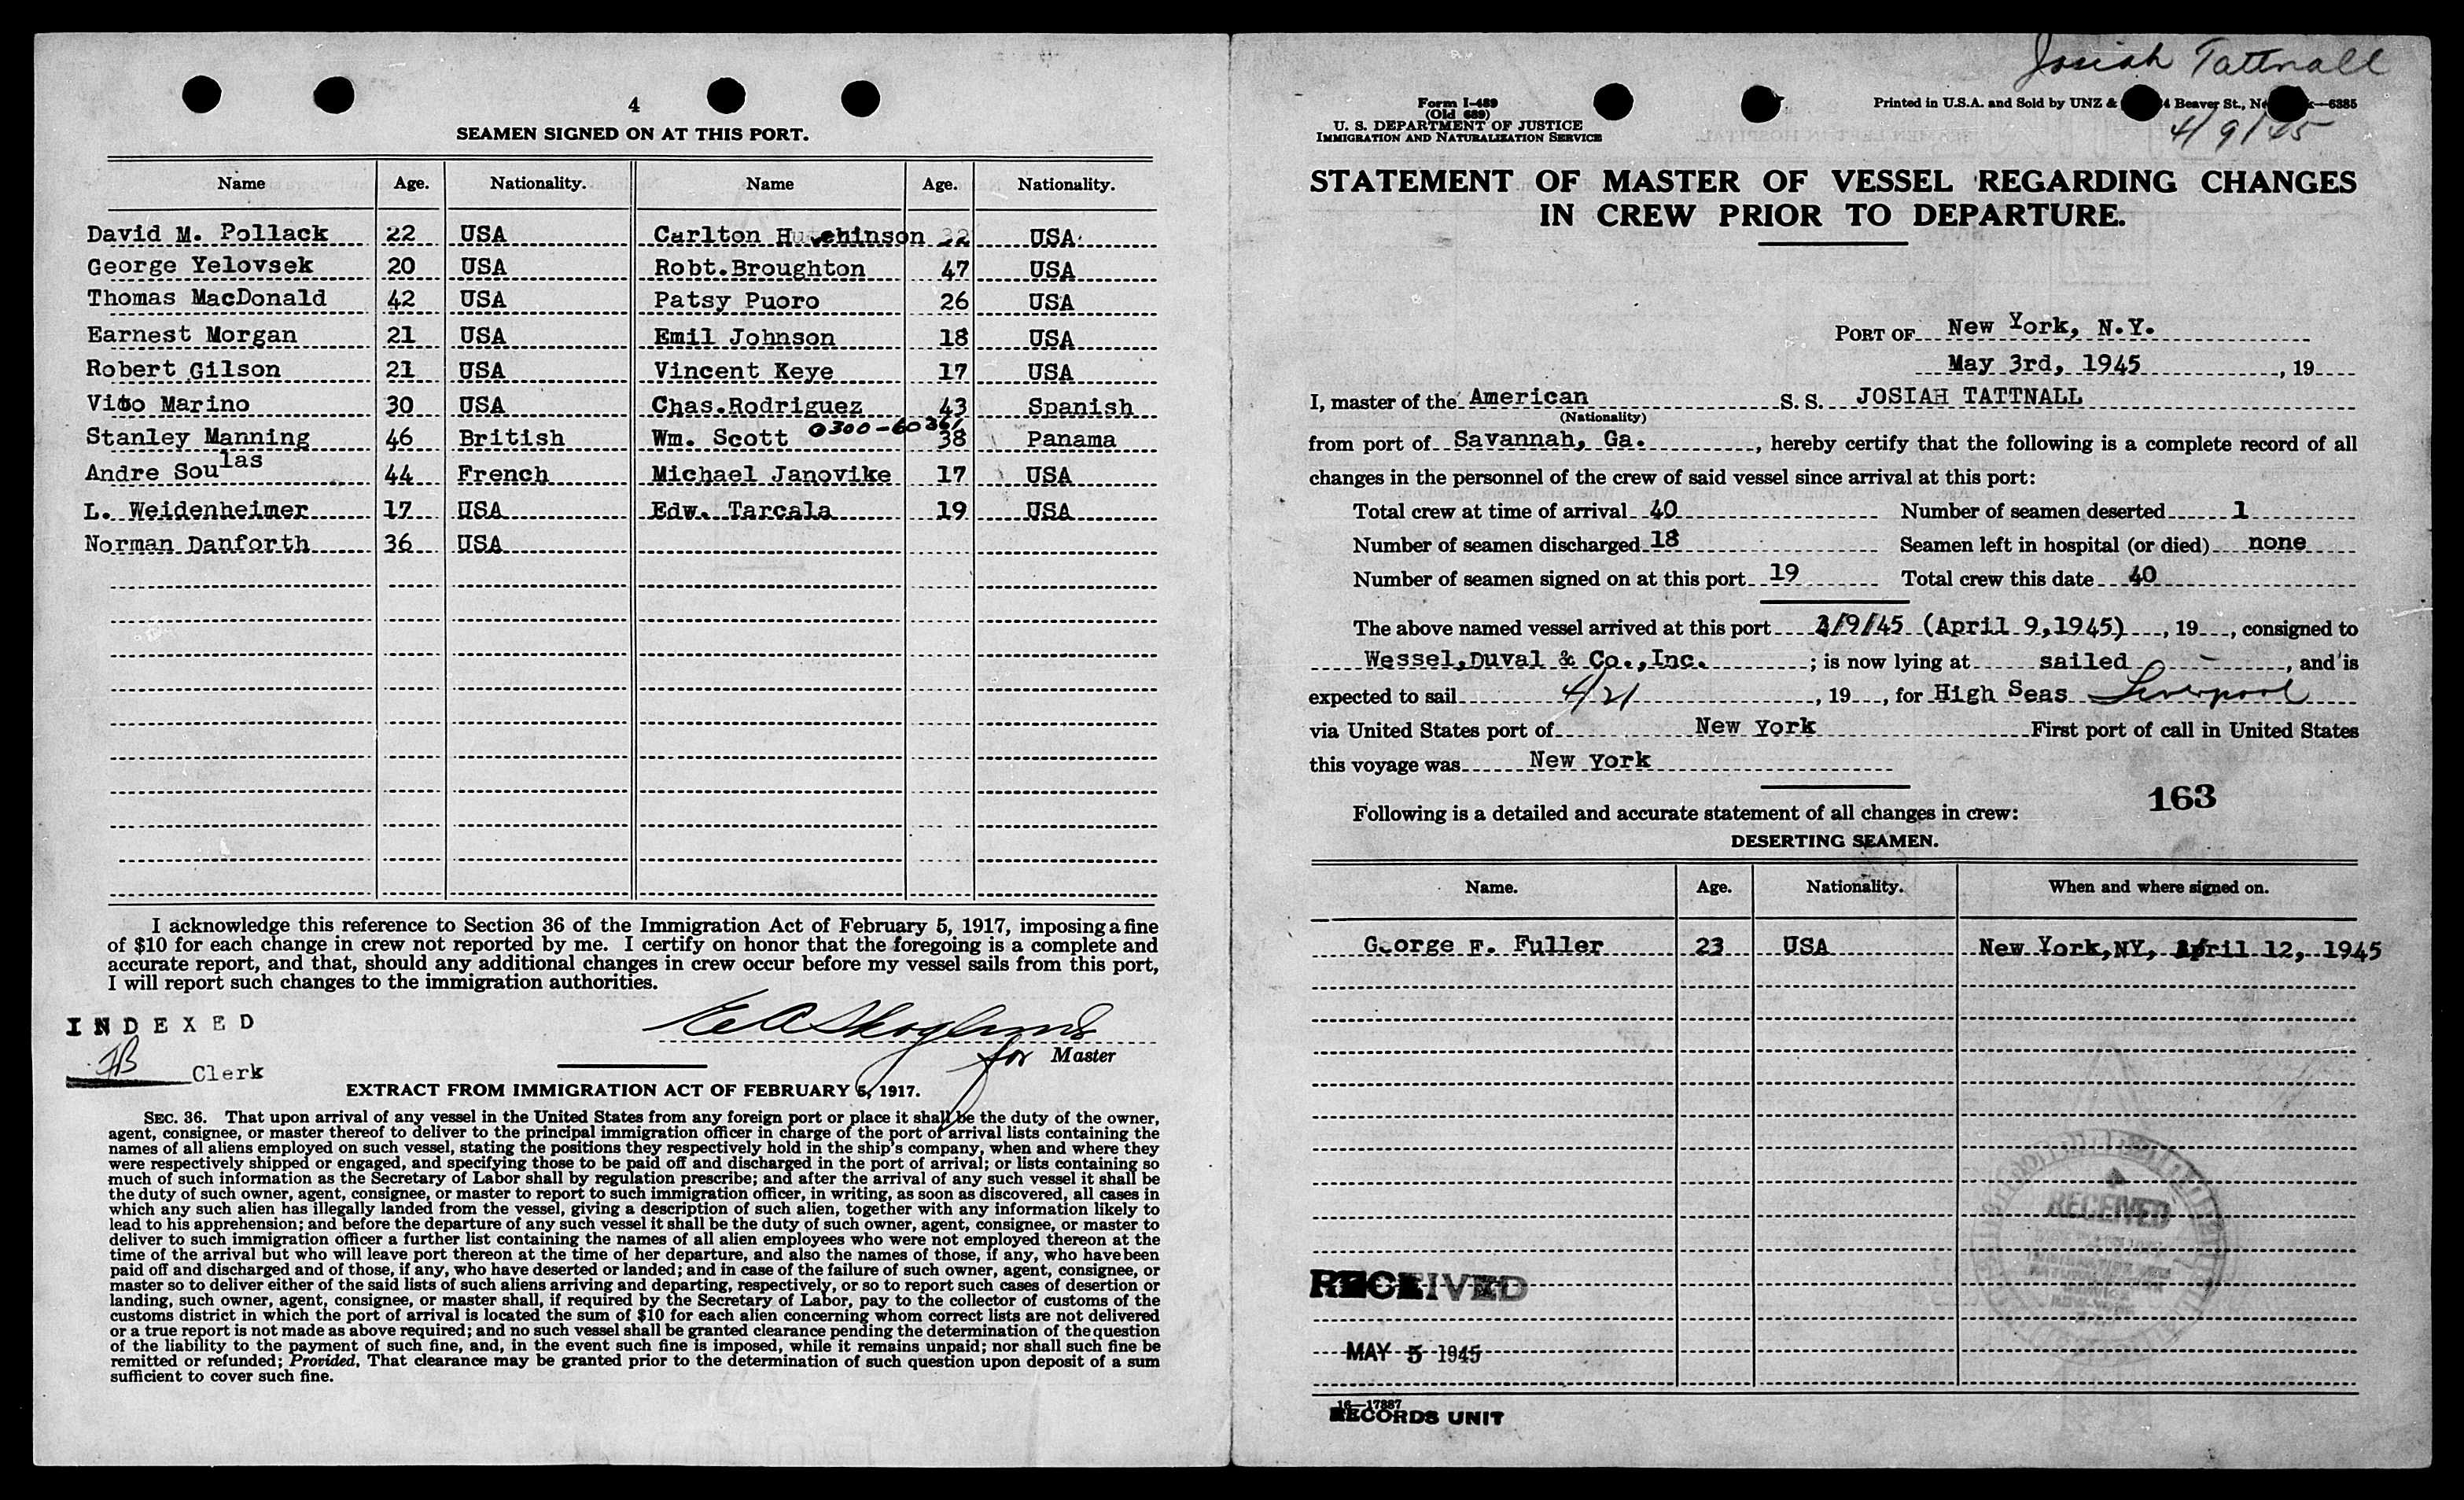 4
SEAMEN SIGNED ON AT THIS PORT.
Name Age. Nationality. Name Age. Nationality.
David M. Pollack 22 USA Carlton Hutchinson 32 USA
George Yelovsek 20 USA Robt.Broughton 47 USA
Thomas MacDonald 42 USA Patsy Puoro 26 USA
Earnest Morgan 21 USA Emil Johnson 18 USA
Robert Gilson 21 USA Vincent Keye 17 USA
Vito Marino 30 USA Chas.Rodriguez 43 Spanish
Stanley Manning 46 British Wm. Scott 0300-60361 38 Panama
Andre Soulas 44 French Michael Janovike 17 USA
L. Weidenheimer 17 USA Edw. Tarcala 19 USA
Norman Danforth 36 USA
I acknowledge this reference to Section 36 of the Immigration Act of February 5, 1917, imposing a fine
of $10 for each change in crew not reported by me. I certify on honor that the foregoing is a complete and
accurate report, and that, should any additional changes in crew occur before my vessel sails from this port,
I will report such changes to the immigration authorities.
INDEXED
JB Clerk
E A Skoglund
for Master
EXTRACT FROM IMMIGRATION ACT OF FEBRUARY 5, 1917.
SEC. 36. That upon arrival of any vessel in the United States from any foreign port or place it shall be the duty of the owner,
agent, consignee, or master thereof to deliver to the principal immigration officer in charge of the port of arrival lists containing the
names of all aliens employed on such vessel, stating the positions they respectively hold in the ship's company, when and where they
were respectively shipped or engaged, and specifying those to be paid off and discharged in the port of arrival; or lists containing so
much of such information as the Secretary of Labor shall by regulation prescribe; and after the arrival of any such vessel it shall be
the duty of such owner, agent, consignee, or master to report to such immigration officer, in writing, as soon as discovered, all cases in
which any such alien has illegally landed from the vessel, giving a description of such alien, together with any information likely to
lead to his apprehension; and before the departure of any such vessel it shall be the duty of such owner, agent, consignee, or master to
deliver to such immigration officer a further list containing the names of all alien employees who were not employed thereon at the
time of the arrival but who will leave port thereon at the time of her departure, and also the names of those, if any, who have been
paid off and discharged and of those, if any, who have deserted or landed; and in case of the failure of such owner, agent, consignee, or
master so to deliver either of the said lists of such aliens arriving and departing, respectively, or so to report such cases of desertion or
landing, such owner, agent, consignee, or master shall, if required by the Secretary of Labor, pay to the collector of customs of the
customs district in which the port of arrival is located the sum of $10 for each alien concerning whom correct lists are not delivered
or a true report is not made as above required; and no such vessel shall be granted clearance pending the determination of the question
of the liability to the payment of such fine, and, in the event such fine is imposed, while it remains unpaid; nor shall such fine be
remitted or refunded; Provided, That clearance may be granted prior to the determination of such question upon deposit of a sum
sufficient to cover such fine.
Josiah Tattnall
4/9/45
Form I-489
(Old 689)
U. S. DEPARTMENT OF JUSTICE
IMMIGRATION AND NATURALIZATION SERVICE
Printed in U.S.A. and Sold by UNZ & 4 Beaver St., 6385
STATEMENT OF MASTER OF VESSEL REGARDING CHANGES
IN CREW PRIOR TO DEPARTURE.
PORT OF New York, N.Y.
May 3rd, 1945, 19
I, master of the American S. S. JOSIAH TATTNALL
(Nationality)
from port of Savannah, Ga., hereby certify that the following is a complete record of all
changes in the personnel of the crew of said vessel since arrival at this port:
Total crew at time of arrival 40 Number of seamen deserted 1
Number of seamen discharged 18 Seamen left in hospital (or died) none
Number of seamen signed on at this port 19 Total crew this date 40
The above named vessel arrived at this port /9/45 (April 9,1945), 19, consigned to
Wessel,Duval & Co.,Inc.; is now lying at sailed, and is
expected to sail 4/21, 19, for High Seas Liverpool
via United States port of New York First port of call in United States
this voyage was New York
163
Following is a detailed and accurate statement of all changes in crew:
DESERTING SEAMEN.
Name. Age. Nationality. When and where signed on.
George F. Fuller 23 USA New York,NY, April 12, 1945
RECEIVED
RECEIVED
MAY 5 1945
16-17887
RECORDS UNIT